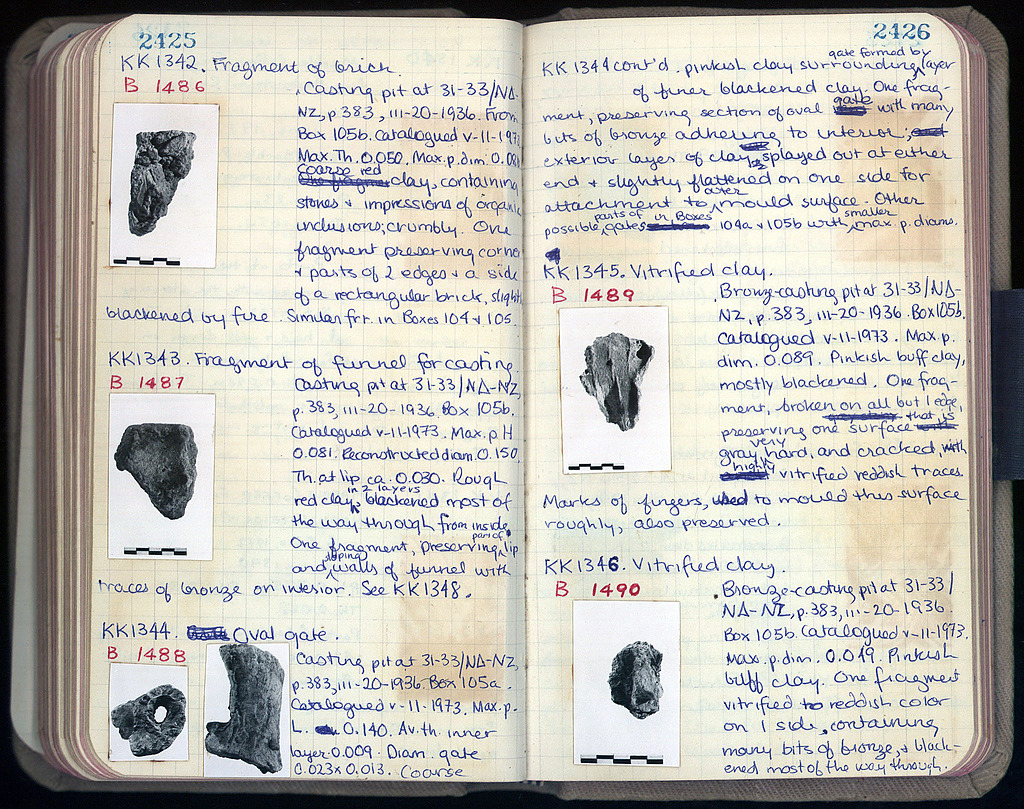 2425
KK1342. Fragment of brick.
B 1486
Casting pit at 31-33/NΔ-
NZ, p.383, III-20-1936. From
Box 105b. Catalogued V-11-197
Max. Th. 0.050. Max. p. dim. 0.08
coarse red
clay, containing
stones + impressions of organic
inclusions; crumbly. One
fragment preserving corner
+ parts of 2 edges + a side
of a rectangular brick, slight
blackened by fire. Similar frr. in Boxes 104 + 105.
KK1343. Fragment of funnel for casting
B 1487
Casting pit at 31-33/NΔ-NZ,
p.383, III-20-1936. Box 105b.
Catalogued V-11-1973. Max. p H
0.081. Reconstructed diam. 0.150.
Th. at lip ca. 0.030. Rough
in 2 layers
red clay, blackened most of
the way through from inside.
part of
One fragment, preserving lip
sloping
and walls of funnel with
traces of bronze on interior. See KK1348.
KK1344. Oval gate.
B 1488
Casting pit at 31-33/NΔ-NZ,
p.383, III-20-1936. Box 105a.
Catalogued V-11-1973. Max. p.
L. 0.140. Av. th. inner
layer 0.009. Diam. gate
c. 023 x 0.013. Coarse
2426
gate formed by
KK1344 cont'd. pinkish clay surrounding layer
of finer blackened clay. One frag-
gate
ment, preserving section of oval with many
bits of bronze adhering to interior;
exterior layers of clay splayed out at either
end + slightly flattened on one side for
outer
attachment to mould surface. Other
parts of in Boxes smaller
possible gates 104a + 105b with max. p. diams.
KK1345. Vitrified clay.
B 1489
Bronze-casting pit at 31-33/NΔ-
NZ, p.383, III-20-1936. Box 105b.
Catalogued V-11-1973. Max. p.
dim. 0.089. Pinkish buff clay,
mostly blackened. One frag-
ment, broken on all but 1 edge,
that is
preserving one surface
very
gray, hard, and cracked, with
highly vitrified reddish traces.
Marks of fingers, used to mould this surface
roughly, also preserved.
KK1346. Vitrified clay.
B 1490
Bronze-casting pit at 31-33/
NΔ-NZ, p.383, III-20-1936.
Box 105b. Catalogued V-11-1973.
Max. p. dim. 0.049. Pinkish
buff clay. One fragment
vitrified to reddish color
on 1 side, containing
many bits of bronze, + black-
ened most of the way through.